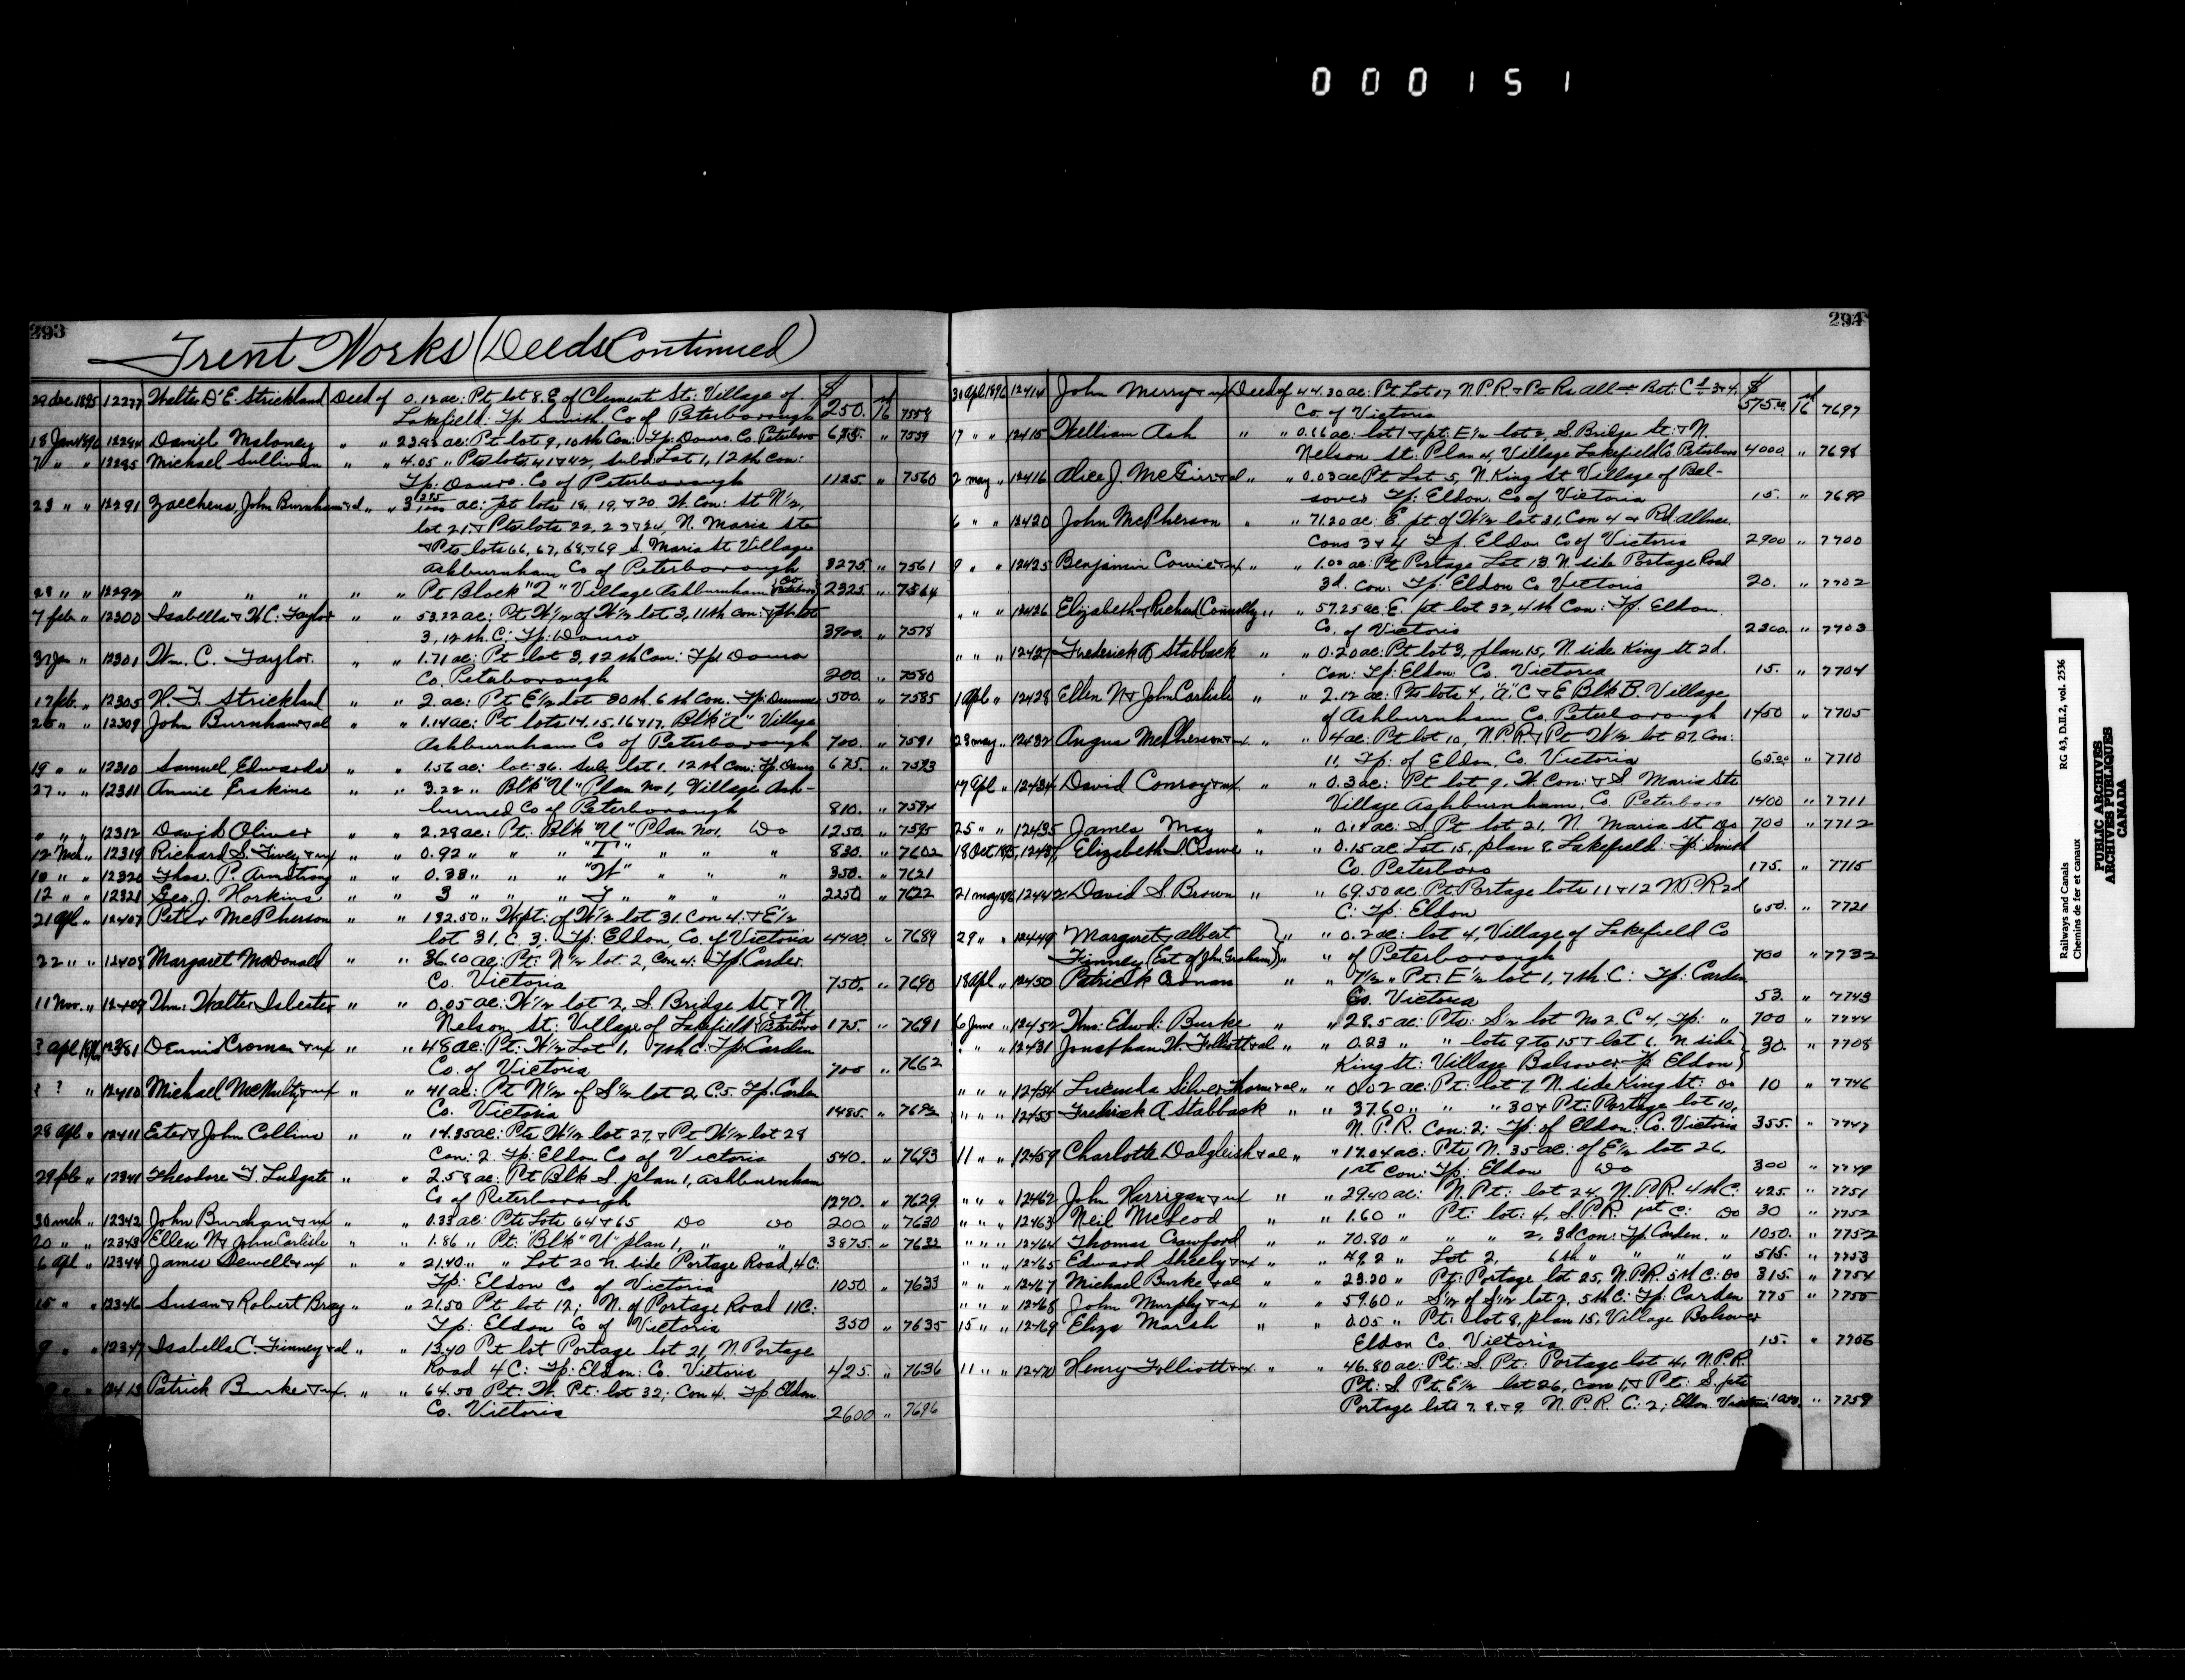 000151
293
Trent Works (Deeds Continued)
29 dec 1895 12277 Walter D'E. Strickland Deed of 0.12 ac: Pt lot 8. E of Clement St: Village of
Lakefield. Tp. Smith. Co of Peterborough $250. 16 7558
18 Jan 1896 12284 Daniel Maloney " " 23.98 ac: Pt lot 9, 10th Con: Tp: Douro. Co. Peterboro 685. " 7559
7 " " 12285 Michael Sullivan " " 4.05 " Pts lots 41 & 42, Sub: Lot 1, 12th Con:
Tp: Douro. Co of Peterborough 1125 " 7560
23 " " 12291 Zaccheus, John Burnham & al " " 3 ac: pt lots 18, 19, & 20 W. Con: St N½,
lot 21, & Pts lots 22, 23 & 24, N. Maria Sts
& Pts lots 66, 67, 68, & 69 S. Maria St Village
Ashburnham Co of Peterborough 8275 " 7561
28 " " 12292 " " " " " Pt Block "Q" Village Ashburnham Co Peterboro 2325 " 7564
7 feb " 12300 Isabella & W.C. Taylor " " 53.22 ac: Pt W½ of W½ lot 3, 11th Con: & Pt lot
3, 12th. C: Tp: Douro 3900. " 7578
31 Jan " 12301 Wm. C. Taylor. " " 1.71 ac: Pt lot 3, 12th Con: Tp: Douro
Co. Peterborough 200. " 7580
17 feb. " 12305 H. T. Strickland " " 2. ac: Pt E½ lot 30th. 6th Con. Tp: Dummer 500. " 7585
25 " " 12309 John Burnham & al " " 1.14 ac: Pt lots 14. 15. 16 & 17, Blk "A" Village
Ashburnham Co of Peterborough 700. " 7591
19 " " 12310 Samuel Edwards " " 1.56 ac: lot 36. Sub. lot 1. 12th Con: Tp. Douro 675. " 7593
27 " " 12311 Annie Erskine " " 3.22 " Blk "U" Plan No 1, Village Ash-
burned Co of Peterborough 810. " 7594
" " " 12312 David Oliver " " 2.28 ac: Pt. Blk "U" Plan No 1. Do 1250. " 7595
12 Mch " 12319 Richard S. Finey & ux " " 0.92 " " " "T" " " " 830. " 7602
10 " " 12320 Thos. P. Armstrong " " 0.38 " " " "W" " " " 350. " 7621
12 " " 12321 Geo. J. Horkins " " 3 " " " T " " " " 2250 " 7622
21 apl " 12407 Peter McPherson " " 132.50 " W. pt: of W½ lot 31. Con 4. & E½
lot 31, C. 3. Tp: Eldon, Co. of Victoria 4400. " 7689
22 " " 12408 Margaret McDonald " " 36.60 ac: Pt: N½ lot. 2, Con 4: Tp. Carden.
Co. Victoria 750. " 7690
11 Nov. " 12409 Wm: Walter Isbester " " 0.05 ac: W½ lot 2, S. Bridge St. & N
Nelson St: Village of Lakefield: Co of Peterboro 175. " 7691
? apl 1896 12381 Dennis Cronan & ux " " 48 ac: Pt: W½ Lot 1, 7th C: Tp: Carden
Co. of Victoria 700 " 7662
? ? " 12410 Michael McNulty & ux " " 41 ac: Pt N½ of S½ lot 2, C. 5. Tp. Carden
Co. Victoria 1485. " 7692
28 apl " 12411 Ester & John Collins " " 14.35 ac: Pts W½ lot 27, & Pt W½ lot 28
Con: 2 Tp: Eldon Co of Victoria 540. " 7693
29 feb " 12341 Theodore T. Ludgate " " 2.58 ac: Pt Blk S. plan 1, Ashburnham
Co of Peterborough 1270. " 7629
30 mch " 12342 John Burchan & ux " " 0.33 ac: Pts Lots 64 & 65 Do Do 200 " 7630
20 " " 12343 Ellen N & John Carlisle " " 1.86 " Pt. Blk "U" plan 1, " " 3875. " 7632
6 apl " 12344 James Dewell & ux " " 21.40 " " Lot 20 N. side Portage Road, 4 C:
Tp: Eldon Co of Victoria 1050. " 7633
15 " " 12346 Susan & Robert Bray " " 21.50 Pt lot 12; N. of Portage Road 11 C:
Tp: Eldon Co of Victoria 350 " 7635
9 " " 12347 Isabella C. Finney & al " " 13.40 Pt lot Portage lot 21, N. Portage
Road 4 C: Tp: Eldon: Co. Victoria 425. " 7636
" " 12413 Patrick Burke & ux. " " 64.50 Pt: W. Pt: lot 32; Con 4. Tp Eldon.
Co. Victoria 2600 " 7696
294
30 apl 1896 12414 John Merry & ux Deed of 44.30 ac: Pt Lot 17 N.P.R & Pt Rd. all. Bet: Cs 3 & 4.
Co. of Victoria $575.00 16 7697
17 " " 12415 William Ash " " 0.66 ac: lot 1 & pt: E½ lot 2, S. Bridge St: & N.
Nelson St: Plan 4, Village Lakefield Co. Peterboro 4000. " 7698
2 may " 12416 Alice J. McGirr & al " " 0.03 ac Pt Lot 5, N. King St Village of Bal-
sover Tp: Eldon. Co of Victoria 15. " 7699
6 " " 12420 John McPherson " " 71.20 ac: E. pt of W½ lot 31, Con 4 & Rd. allnce.
Cons 3 & 4 Tp. Eldon Co of Victoria 2900 " 7700
9 " " 12425 Benjamin Cowie & ux " " 1.00 ac: Pt Portage Lot 13. N. side Portage Road
3d. Con: Tp: Eldon Co Victoria 20. " 7702
" " " 12426 Elizabeth & Richard Connolly " " 57.25 ac. E. pt lot 32, 4th Con: Tp. Eldon.
Co. of Victoria 2300. " 7703
" " " 12427 Frederick Stabback " " 0.20 ac: Pt lot 3, plan 15, N. side King St 2d.
Con: Tp: Eldon: Co. Victoria 15. " 7704
1 apl " 12428 Ellen N & John Carlisle " " 2.12 ac: Pts lots 4, "A" C & E Blk B. Village
of Ashburnham, Co. Peterborough 1450 " 7705
23 may " 12432 Angus McPherson & ux " " 4 ac: Pt lot 10, N.P.R. & Pt W½ lot 27. Con:
11. Tp: of Eldon, Co. Victoria 65.00 " 7710
17 apl " 12434 David Conroy & ux. " " 0.3 ac: Pt lot 9. W. Con: & S Maria Sts
Village Ashburnham, Co. Peterboro 1400 " 7711
25 " " 12435 James May " " 0.14 ac: S Pt lot 21, N. Maria St Do 700 " 7712
18 Oct 1895 12437 Elizabeth S. Crowe " " 0.15 ac Lot 15, plan 8 Lakefield. Tp: Smith
Co. Peterboro 175. " 7715
21 may 1896 12442 David S. Brown " " 69.50 ac. Pt. Portage lots 11 & 12 N.P.R 2d
C: Tp: Eldon 650. " 7721
29 " " 12449 Margaret & Albert " " 0.2 ac: lot 4, Village of Lakefield Co
Finney (Est of Jhn. Graham) " " of Peterborough 700 " 7732
18 apl " 12450 Patrick Cronan " " 7½ " Pt: E½ lot 1, 7th. C: Tp: Carden
Co. Victoria 53. " 7743
6 June " 12452 Wm: Edwd: Burke " " 28.5 ac: Pts: S½ lot No 2 C 4, Tp: " 700 " 7744
" " 12431 Jonathan W. Folliott & al " " 0.23 " " lots 9 to 15 & lot 6. N side
King St: Village Balsover Tp Eldon) 30. " 7708
" " " 12454 Lucinda Silverthorn & al " " 0.02 ac: Pt: lot 7 N. side King St: Do 10 " 7746
" " " 12455 Fredrick A Stabback " " 37.60 " " " 30 & Pt: Portage lot 10,
N. P. R. Con: 2; Tp: of Eldon: Co. Victoria 355. " 7747
11 " " 12459 Charlotte Dalgleish & al " " 17.04 ac: Pts N. 35 ac: of E½ lot 26,
1st Con: Tp: Eldon Do 300 " 7749
" " " 12462 John Harrigan & ux " " 29.40 ac: N. Pt: lot 24, N.P.R. 4th C: 425. " 7751
" " " 12463 Neil McLeod " " 1.60 " Pt: lot: 4, S.P.R. 1st C: Do 30 " 7752
" " " 12464 Thomas Crawford " " 70.80 " " " 2, 3d Con: Tp. Carden. " 1050. " 7752
" " " 12465 Edward Sheehy & ux " " 49.2 " Lot 2, 6th " " " " 515. " 7753
" " 12467 Michael Burke & al " " 23.20 " Pt: Portage lot 25, N.P.R. 5th C: Do 315. " 7754
" " " 12468 John Murphy & ux " " 59.60 " S½ of S½ lot 2, 5th C: Tp: Carden 775 " 7755
15 " " 12469 Eliza Marsh " " 0.05 " Pt: lot 8, plan 15, Village Balsover
Eldon Co. Victoria 15. " 7756
11 " " 12470 Henry Folliott & ux " " 46.80 ac: Pt: S. Pt: Portage lot 4, N.P.R.
Pt: S. Pt. E½ lot 26, Con 1, & Pt: S. pts
Portage lots 7. 8. & 9. N. P. R. C: 2; Eldon. Victoria " 7759
Railways and Canals RG 43, D.II.2, vol. 2536
Chemins de fer et canaux
PUBLIC ARCHIVES
ARCHIVES PUBLIQUES
CANADA